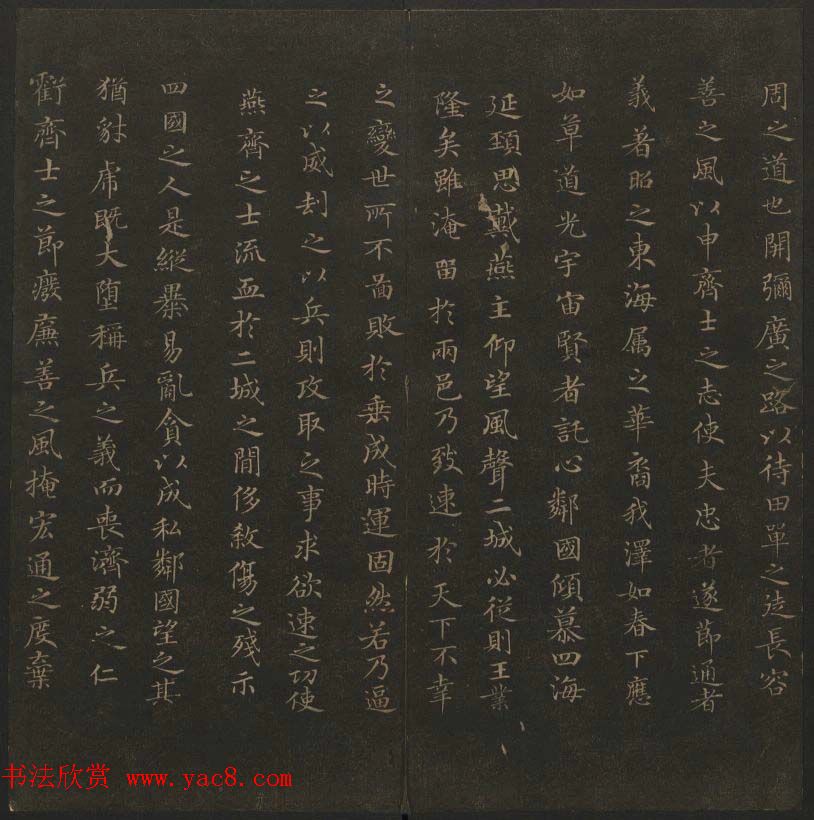 周之道也開彌廣之路以待田單之徒長容
善之風以申齊士之志使夫忠者遂節通者
義著昭之東海属之華裔我澤如春下應
如草道光宇宙賢者託心鄰國傾慕四海
延頚思戴燕主仰望風聲二城必從則王業
隆矣雖淹留於兩邑乃致速於天下不幸
之變世所不啚敗於垂成時運固然若乃逼
之以威刦之以兵則攻取之事求欲速之功使
燕齊之士流血於二城之閒侈敘傷之殘示
四國之人是縱暴易亂貪以成私鄰國望之其
猶豺虎既大堕稱兵之義而喪濟弱之仁
虧齊士之節癈廉善之風掩宏通之度棄
书法欣赏 www.yac8.com